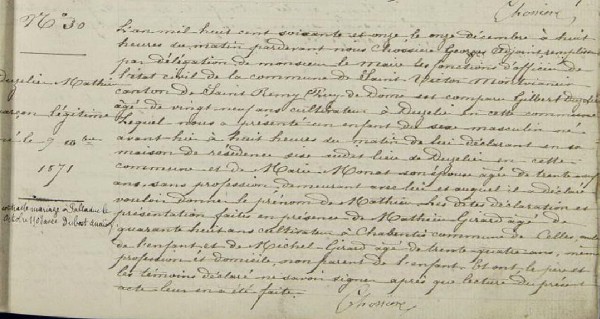 Chossière
N° 30
L'an mil huit cent soixante et onze le onze décembre à huit
heures du matin pardevant nous Chossière Georges adjoint remplissant
par délégation de monsieur le maire les fonctions d'officier de
l'état civil de la commune de Saint Victor Montvianeix
canton de Saint Remy Puy de Dôme est comparu Gilbert
âgé de vingt neuf ans cultivateur à en cette commune
lequel nous a présenté un enfant du sexe masculin né
avant hier à huit heures du matin de lui déclarant en sa
maison de résidence sise audit lieu de en cette
commune et de Marie Monat son épouse âgée de trente
ans sans profession demeurant avec lui et auquel il a déclaré
vouloir donner le prénom de Mathieu les dites déclaration et
présentation faites en présence de Mathieu Girard âgé de
quarante huit ans cultivateur à Chabentis commune de Celles,
de l'enfant et de Michel Girard âgé de trente quatre ans, même
profession et domicile, non parent de l'enfant. Et ont le père et
les témoins déclaré ne savoir signer après que lecture du présent
acte leur en a été faite.
Chossière
Mathieu
garçon légitime
né le 9 Xbre
1871